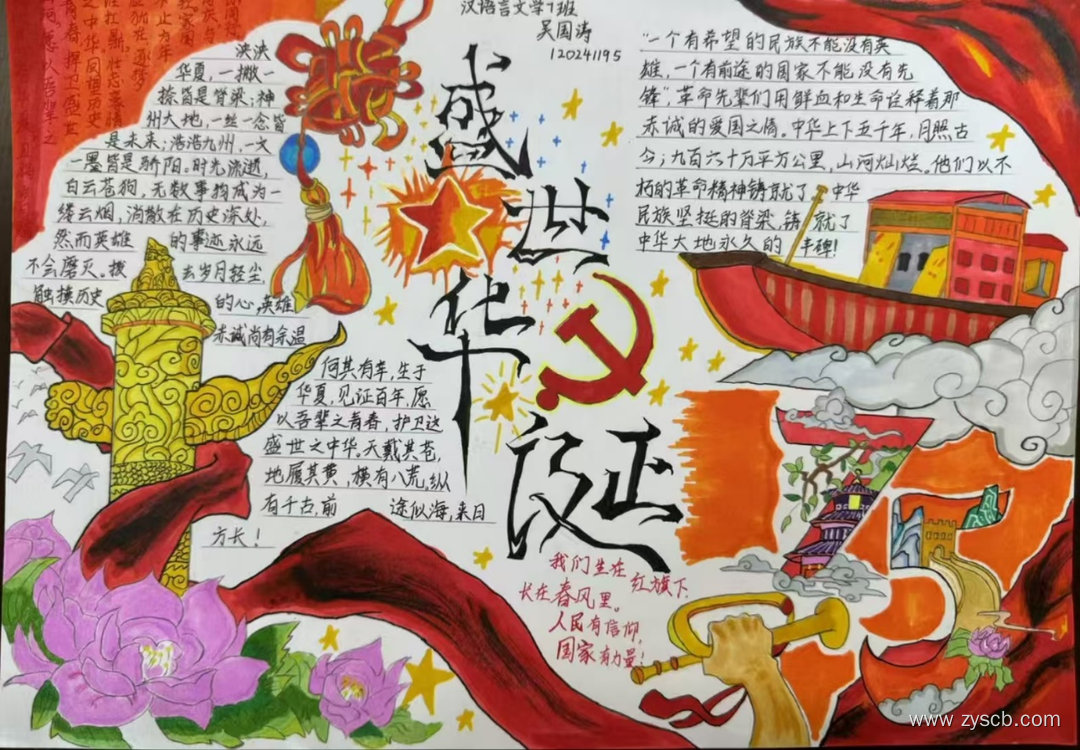 汉语言文学1班
吴国涛
120241195
盛世华诞
泱泱
华夏,一撇一
捺皆是脊梁;神
州大地,一丝一念皆
是未来;浩浩九州,一文
一墨皆是骄阳。时光流逝,
白云苍狗,无数事物成为一
缕云烟,消散在历史深处,
然而英雄 的事迹永远
不会磨灭。拨 去岁月轻尘,
触摸历史 的心,英雄
赤诚尚有余温
何其有幸,生于
华夏,见证百年,愿
以吾辈之青春,护卫这
盛世之中华。天戴其苍,
地履其黄,横有八荒,纵
有千古,前 途似海,来日
方长!
"一个有希望的民族不能没有英
雄,一个有前途的国家不能没有先
锋",革命先辈们用鲜血和生命诠释着那
赤诚的爱国之情。中华上下五千年,月照古
今;九百六十万平方公里,山河灿烂。他们以不
朽的革命精神铸就了 中华
民族坚挺的脊梁,铸 就了
中华大地永久的 丰碑!
我们生在 红旗下,
长在春风里。
人民有信仰,
国家有力量!
75
www.zyscb.com